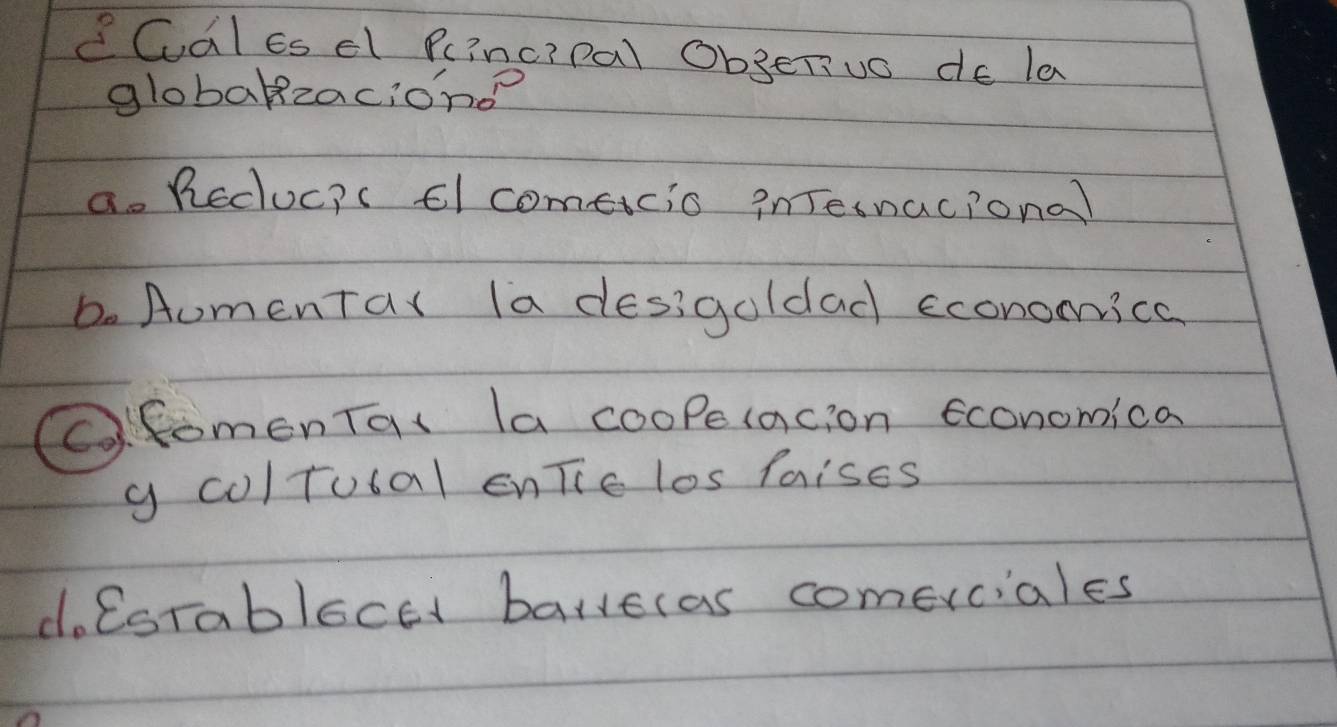 ¿Cuál es el Principal Objetivo de la
globalización?
a. Reducir el comercio internacional
b. Aumentar la desigualdad economica
c. Fomentar la cooperacion economica
y cultural entre los Paises
d. Establecer barreras comerciales